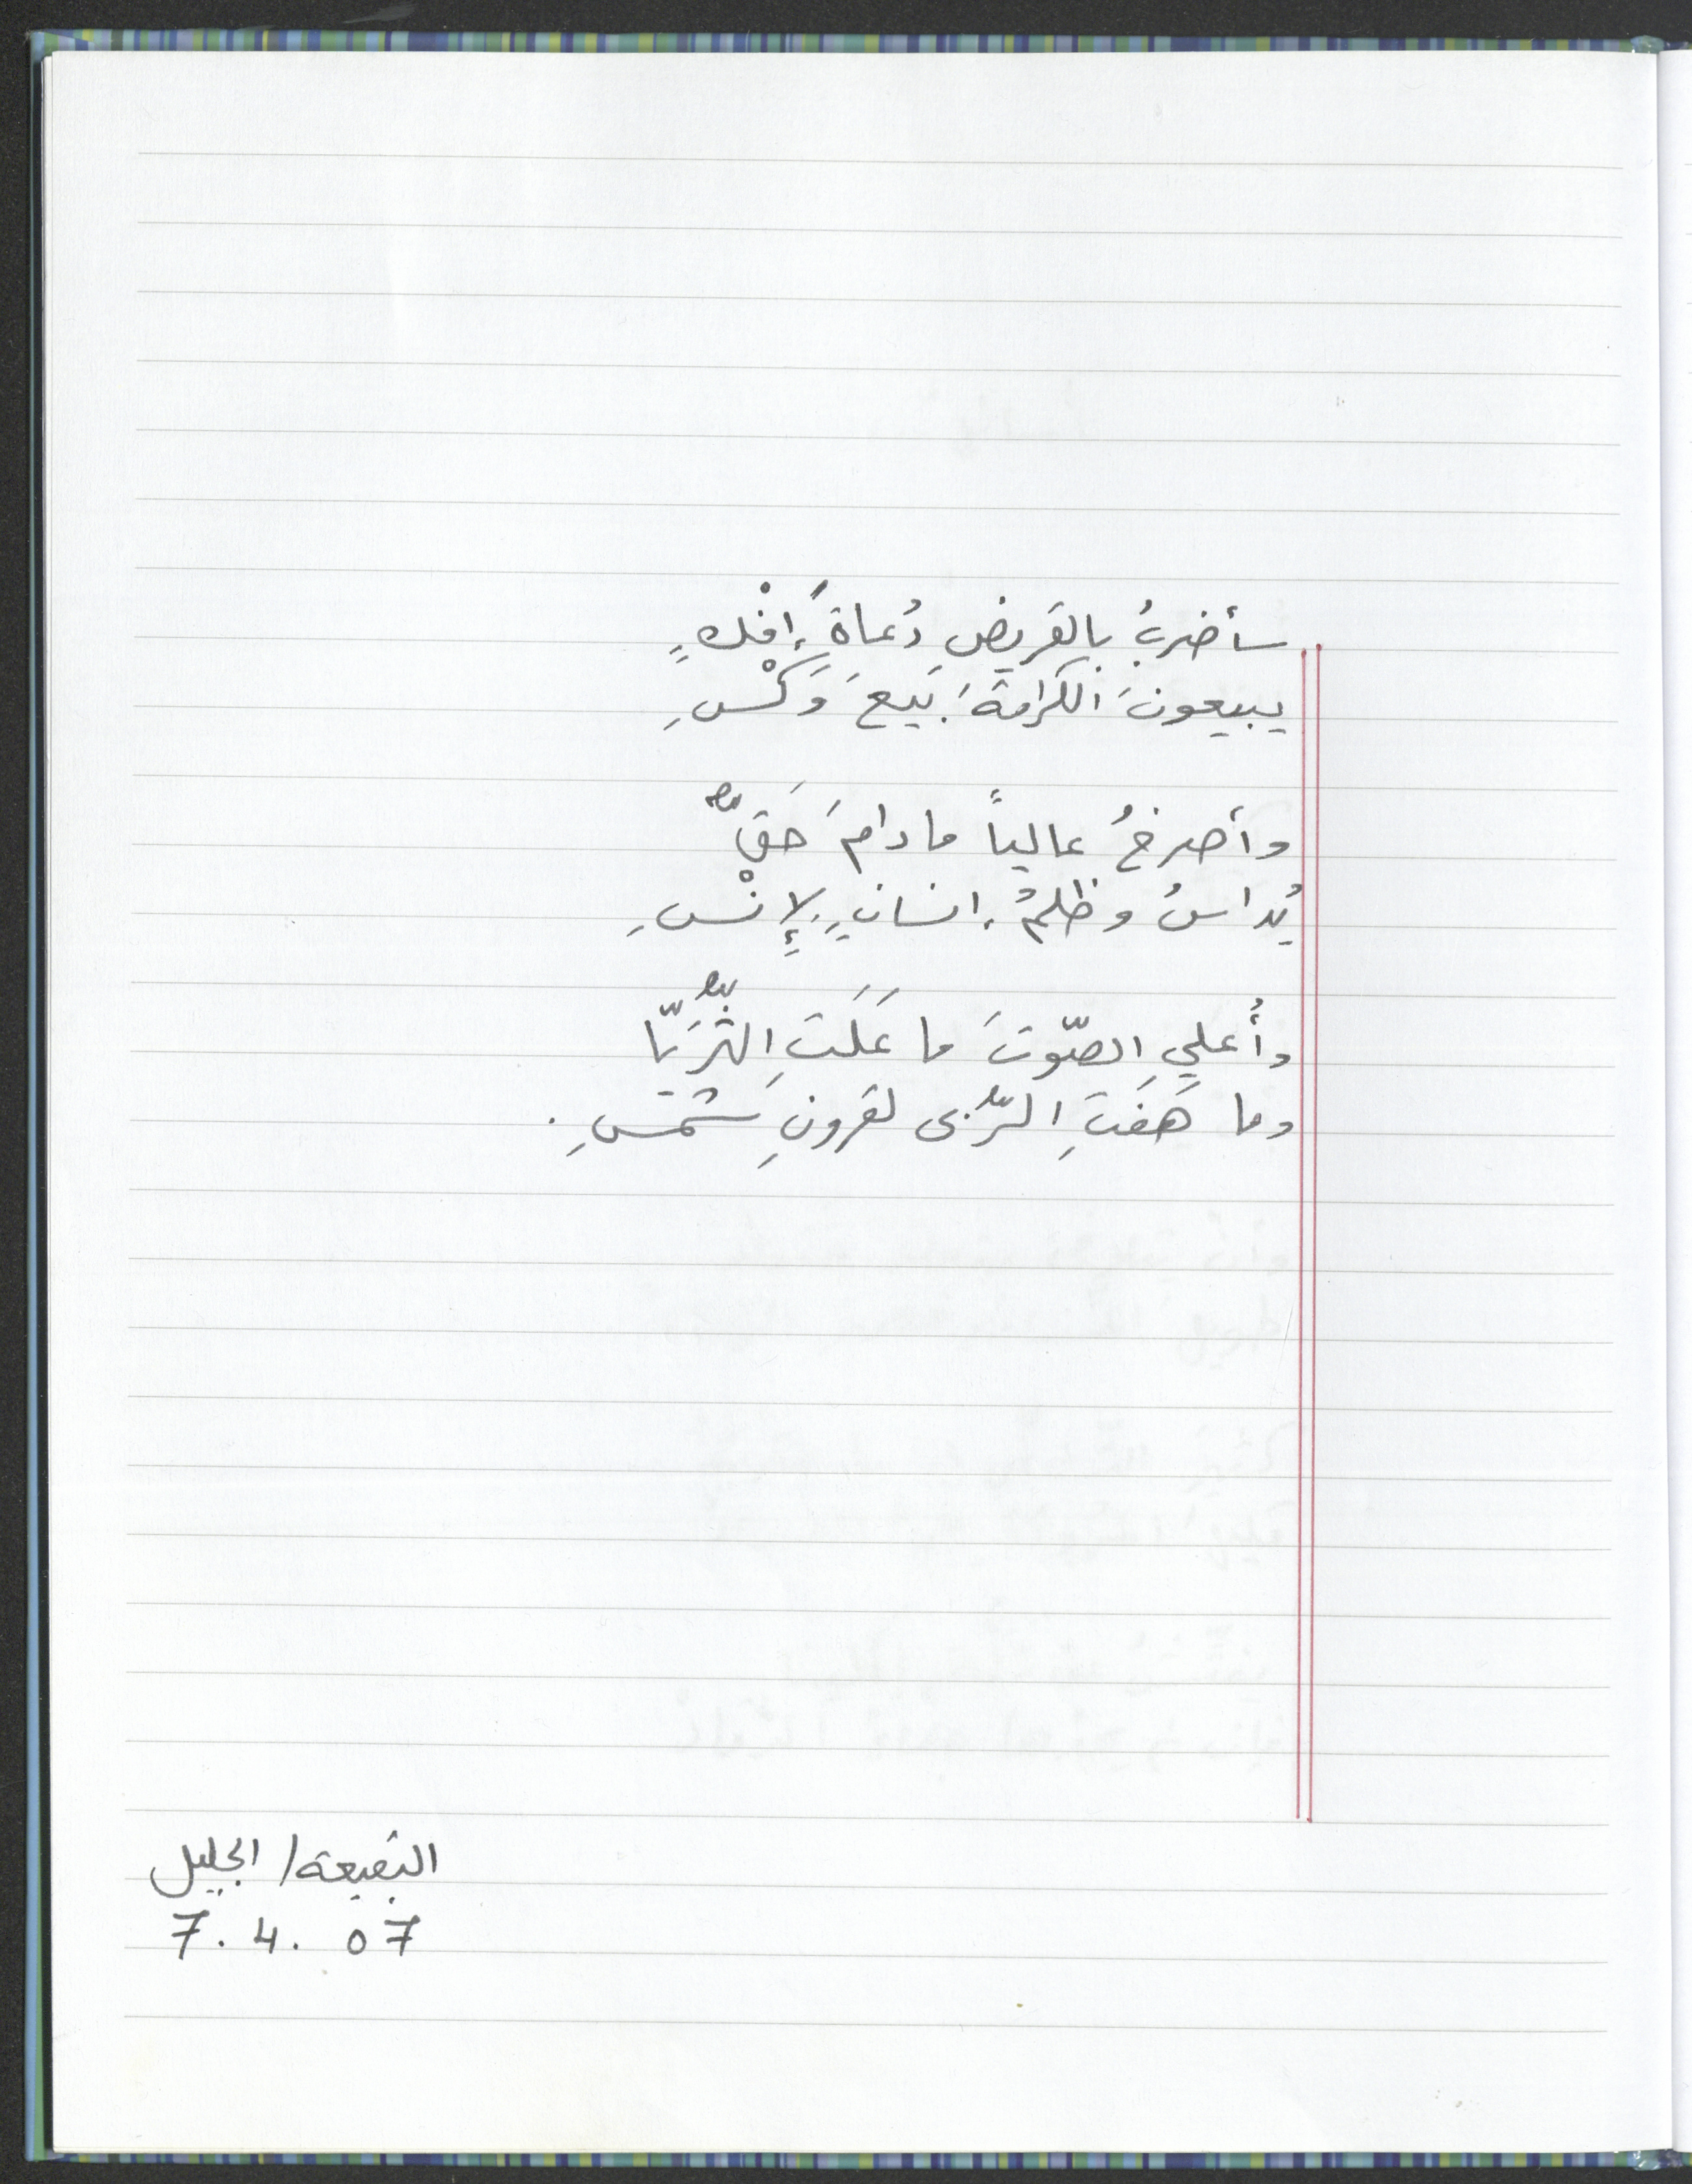 سأضربُ بالقريضِ دُعاةَ إفْكٍ
يبيعونَ الكرامةَ بَيعَ وَكْسِ
وأصرخُ عالياً ما دامَ حَقٌّ
يُداسُ وظلمُ إنسانٍ لإِنْسِ
وأُعلي الصّوتَ ما عَلَتِ الثُّرَيّا
وما هَفَتِ الرُّبى لقرونِ شَمْسِ.
البُقيعة/ الجليل
7. 4. 07